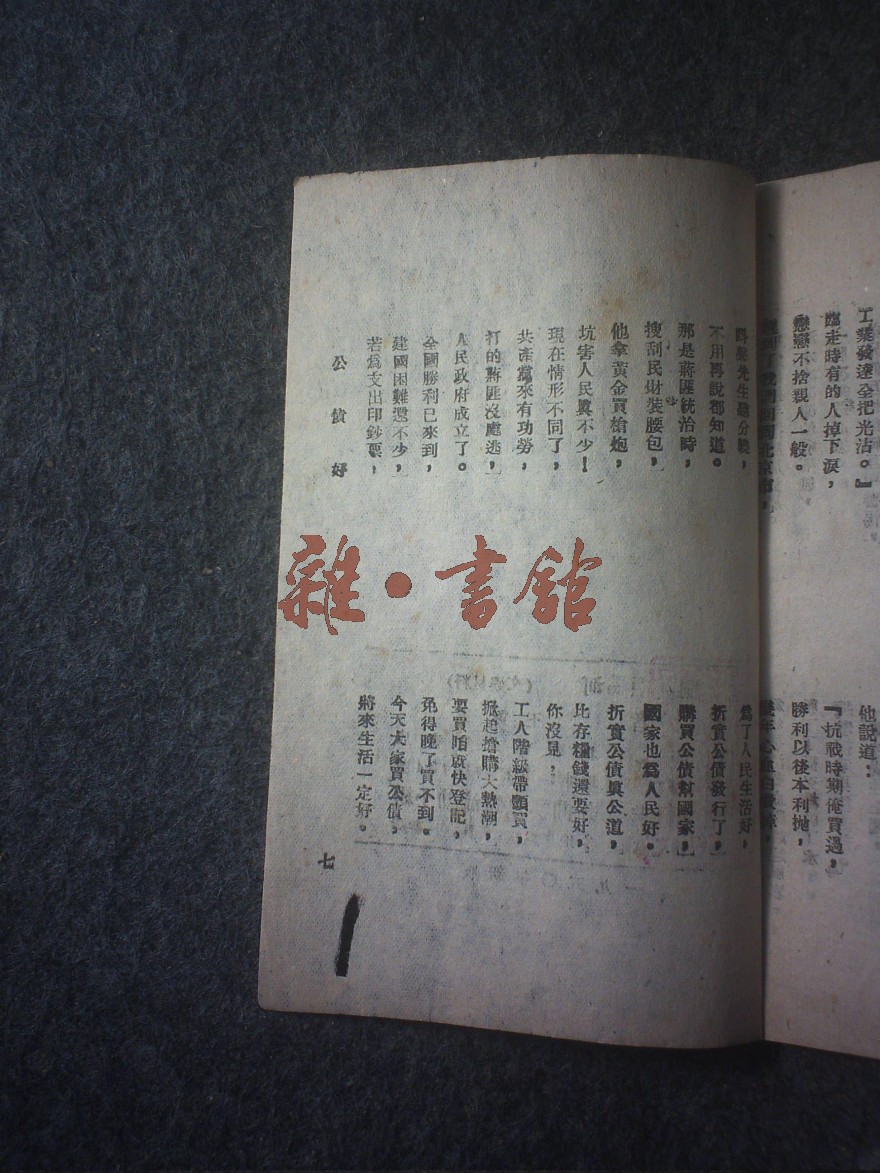 工業發達全把光沾。』
臨走時有的人掉下淚，
戀戀不捨親人一般。
他說道：
『抗戰時期俺買過，
勝利以後本利拋，
不用再說都知道。
那是蔣匪統治時，
搜刮民財裝腰包，
他拿黃金買槍炮，
坑害人民眞不少！
現在情形不同了，
共產黨來有功勞，
打的蔣匪沒處逃，
人民政府成立了。
全國勝利已來到，
建國困難還不少，
若爲支出印鈔票，
爲了人民生活好，
折實公債發行了，
購買公債幫國家，
國家也爲人民好。
折實公債眞公道，
比存糧錢還要好，
你沒見，
工人階級帶頭買，
掀起搶購大熱潮，
要買咱就快登記，
免得晚了買不到。
今天大家買公債，
將來生活一定好。
公債好
七
雜·書館